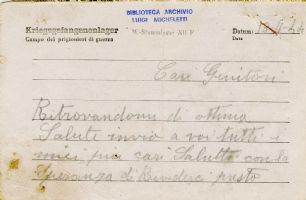 BIBLIOTECA ARCHIVIO
LUIGI MICHELETTI
Kriegsgefangenenlager
Campo dei prigionieri di guerra
M.-Stammlager XII F
Datum:
Data
Cari Genitori
Ritrovandomi di ottima
Salute invio a voi tutti i
miei più cari Saluti con la
Speranza di Rivederci presto